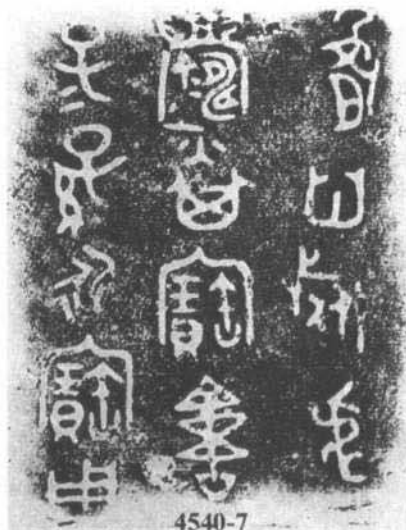 山旅虎
鑄其寶簠
子＝孫＝永寶用
4540-7